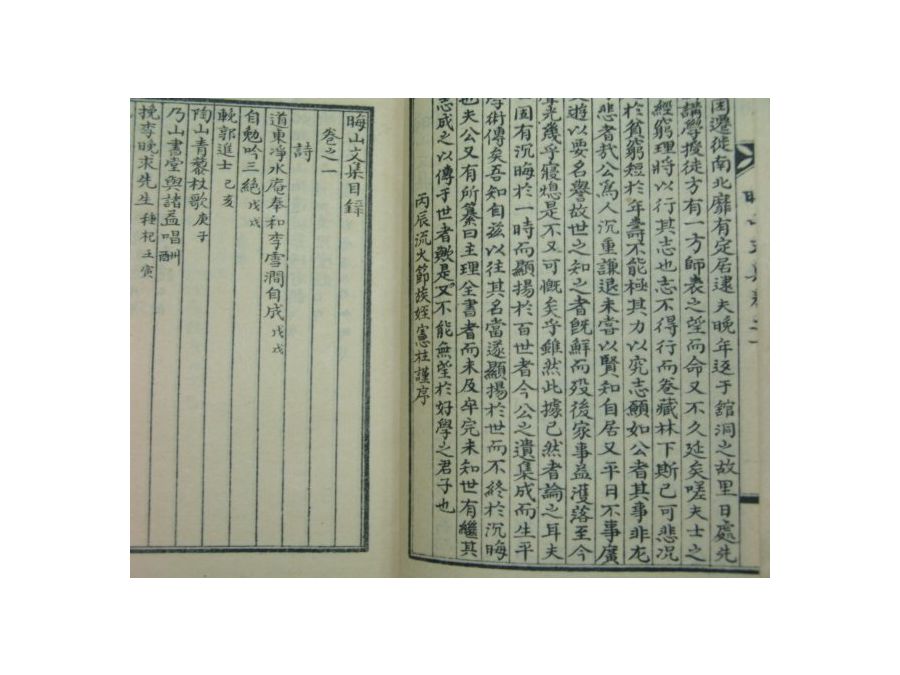 因遷徙南北靡有定居逮夫晩年返于舘洞之故里日處先
講學授徒方有一方師表之望而命又不久延矣嗟夫士之
經窮理將以行其志也志不得行而卷藏林下斯已可悲况
於貧窮短於年壽不能極其力以究志願如公者其事非尤
悲者哉公爲人沉重謙退未嘗以賢知自居又平日不事廣
遊以要名譽故世之知之者旣鮮而歿後家事益濩落至今
光幾乎寢熄是不又可慨矣乎雖然此據已然者論之耳夫
固有沉晦於一時而顯揚於百世者今公之遺集成而生平
學術傳矣吾知自玆以往其名當遂顯揚於世而不終於沉晦
也夫公又有所纂曰主理全書者而未及卒完未知世有繼其
志成之以傳于世者歟是又不能無望於好學之君子也
丙辰流火節族姪憲柱謹序
晦山文集目錄
卷之一
詩
道東凈水庵奉和李雪澗自成 戊戌
自勉吟三絶 戊戌
輓郭進士 己亥
陶山青藜杖歌 庚子
乃山書堂與諸益唱酬
挽李晚求先生 種杞 壬寅